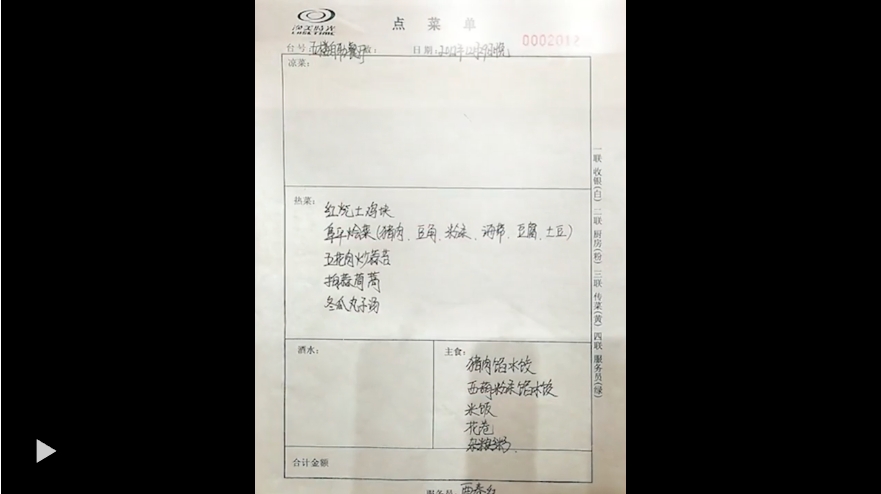 点菜单
0002012
台号: 日期:
凉菜:
热菜:
红烧土鸡块
阜平烩菜(猪肉、豆角、粉条、海带、豆腐、土豆)
五花肉炒蒜苔
拍蒜茼蒿
冬瓜丸子汤
酒水:
主食:
猪肉馅水饺
西葫粉条馅水饺
米饭
花卷
杂粮粥
合计金额
服务员
一联 收银(白) 二联 厨房(粉) 三联 传菜(黄) 四联 服务员(绿)